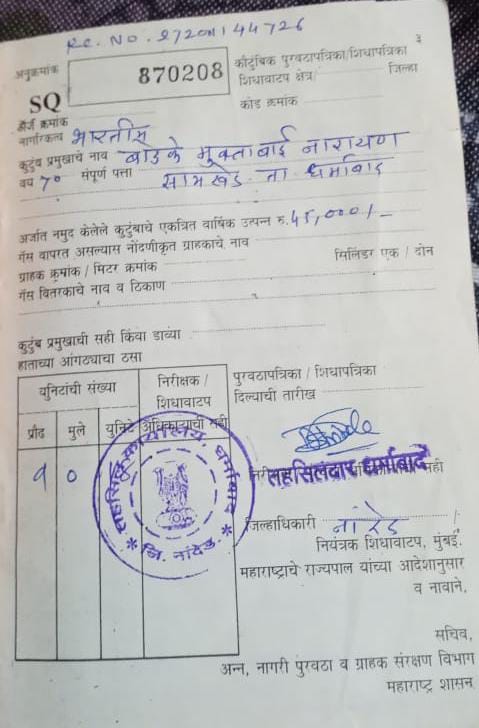 RC. NO. 272011144726
३
अनुक्रमांक
870208
कौटुंबिक पुरवठापत्रिका/शिधापत्रिका
शिधावाटप क्षेत्र/ जिल्हा
कोड क्रमांक
SQ
अर्ज क्रमांक
नागरिकत्व भारतीय
कुटुंब प्रमुखाचे नाव बोडके मुक्ताबाई नारायण
वय 70 संपूर्ण पत्ता ता धर्माबाद
अर्जात नमुद केलेले कुटुंबाचे एकत्रित वार्षिक उत्पन्न रु. 45,000/-
गॅस वापरत असल्यास नोंदणीकृत ग्राहकाचे नाव
ग्राहक क्रमांक / मिटर क्रमांक सिलिंडर एक / दोन
गॅस वितरकाचे नाव व ठिकाण
कुटुंब प्रमुखाची सही किंवा डाव्या
हाताच्या आंगठ्याचा ठसा
युनिटांची संख्या
निरीक्षक /
शिधावाटप
अधिकाऱ्याची सही
प्रौढ मुले युनिटे
१ ०
पुरवठापत्रिका / शिधापत्रिका
दिल्याची तारीख
तहसिल कार्यालय, धर्माबाद
* जि. नांदेड. *
तहसिलदार धर्माबाद
सही
जिल्हाधिकारी नांदेड /
नियंत्रक शिधावाटप, मुंबई.
महाराष्ट्राचे राज्यपाल यांच्या आदेशानुसार
व नावाने,
सचिव,
अन्न, नागरी पुरवठा व ग्राहक संरक्षण विभाग
महाराष्ट्र शासन